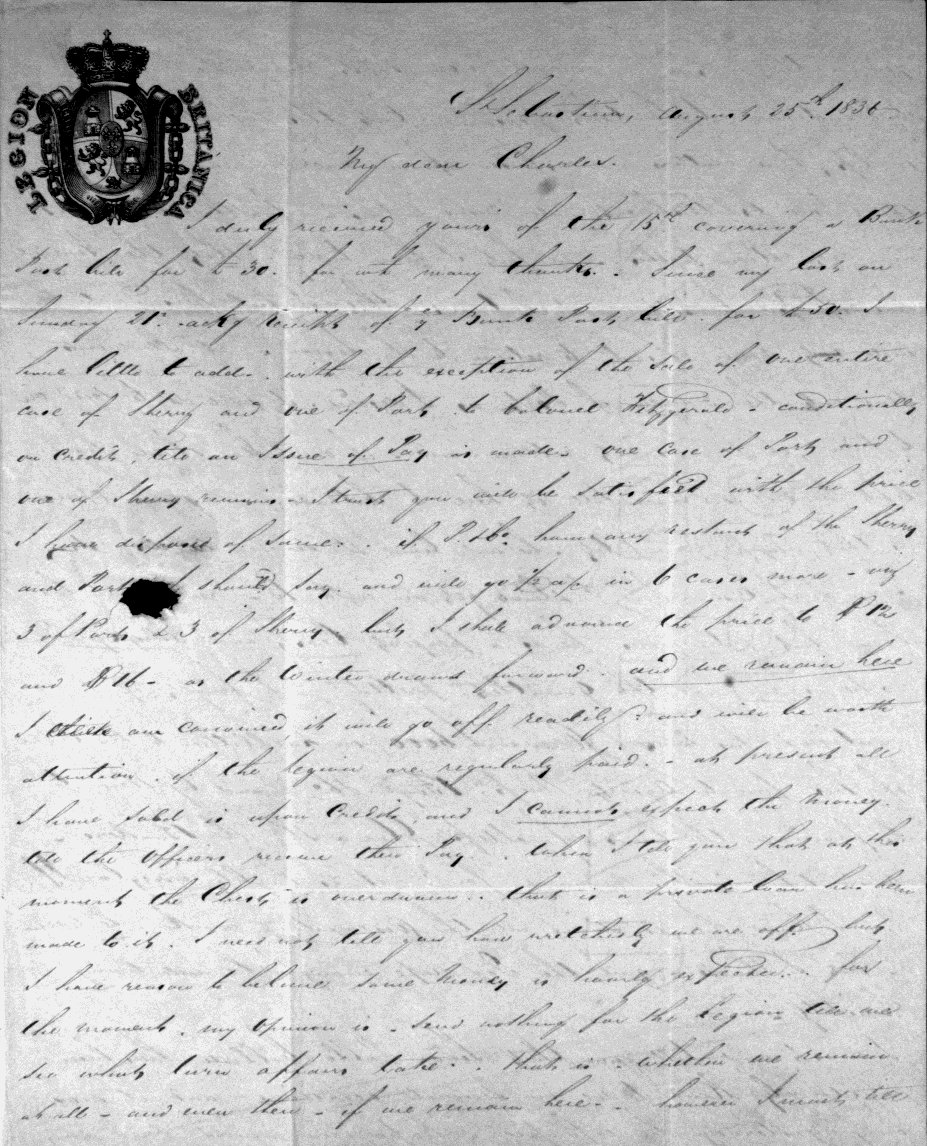 LEGION BRITANICA
St. Sebastian, August 25th. 1836
My dear Charles.
I duly received yours of the 15th covering a Bank
Post bill for £30. for wh many thanks. Since my last on
Sunday 21st. ackg receipt of Bank Post bill for £50. I
have little to add. with the exception of the sale of one entire
case of Sherry and one of Port to Colonel Fitzgerald - conditionally
on credit, till an Issue of Pay is made. one case of Port and
one of Sherry remains. I trust you will be satisfied with the price
I have disposed of same. if P. & Co. have any restant of the Sherry
and Port I should say and will go in 6 cases more - viz
3 of Port & 3 of Sherry but I shall advance the price to $12
and $16 - as the Winter draws forward. and we remain here
I am convinced it will go off readily and will be worth
attention. if the legion are regularly paid. - at present all
I have sold is upon credit, and I cannot expect the money
till the Officers receive their Pay. when I tell you that at this
moment the Chest is overdrawn. that is a private loan has been
made to it. I need not tell you how wretchedly we are off, but
I have reason to believe some money is hourly expected. for
the moment, my opinion is - send nothing for the Legion till we
see what turn affairs take. that is - whether we remain
at all - and even then - if we remain here. - however I must tell